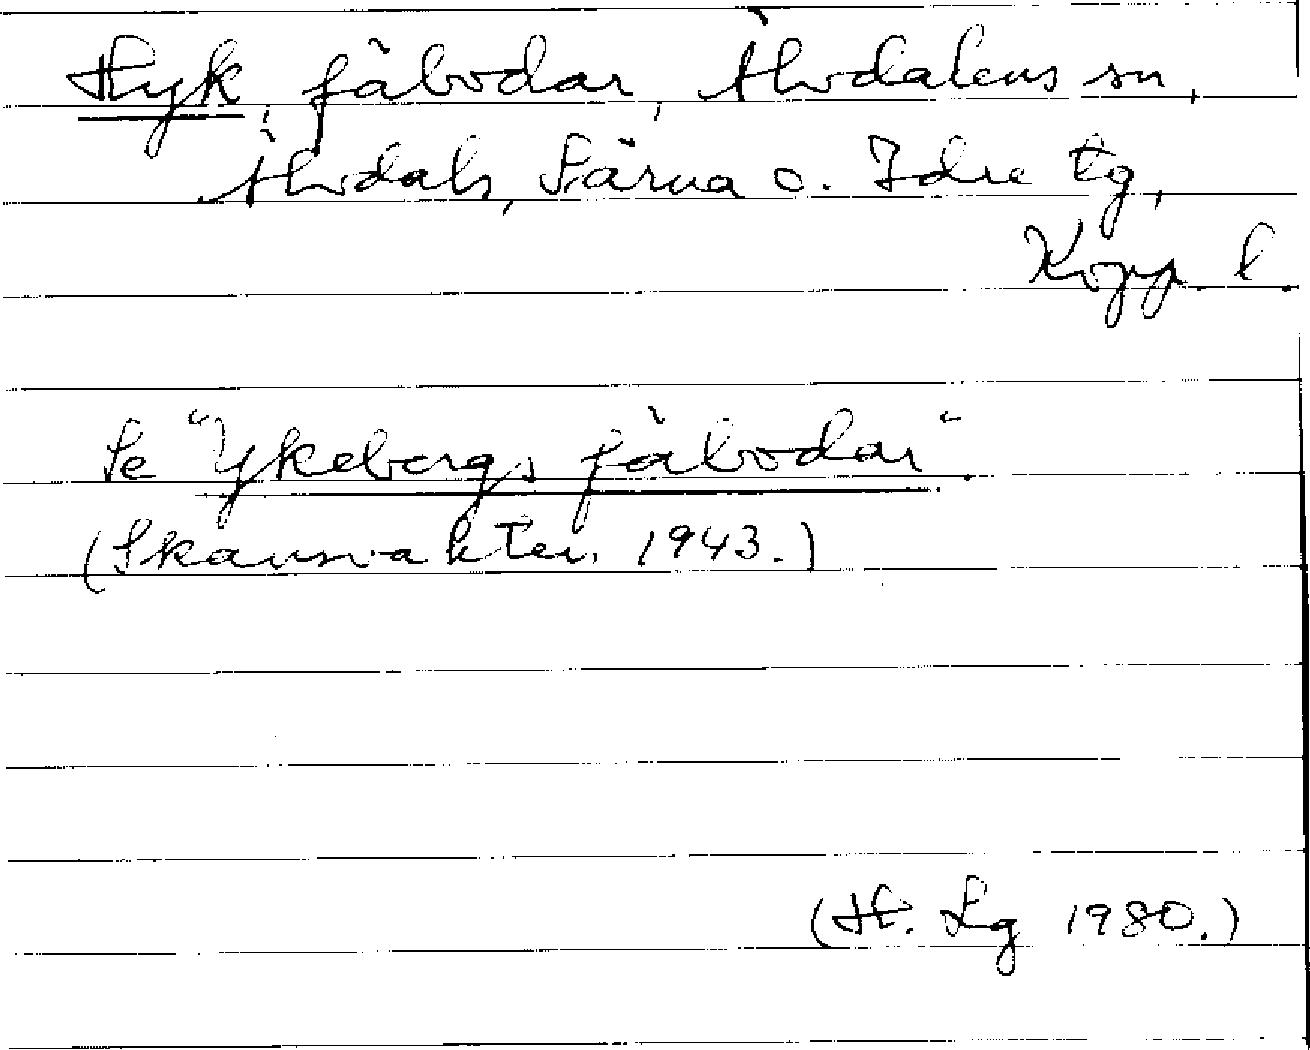 Hyk, fäbodar, Älvdalens sn,
Älvdals, Särna o. Idre tg,
Kopp. l.
Se "Ykebergs fäbodar".
(Skansvakten, 1943.)
(H. Lg 1980.)